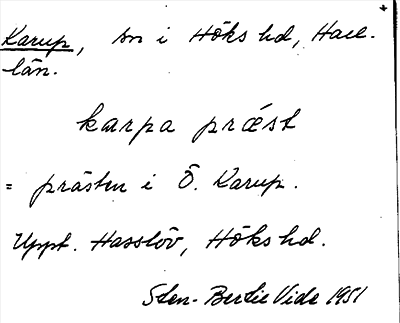 Karup, sn i Höks hd, Hall.
län.
karpa præst
= prästen i Ö. Karup.
Uppt. Hasslöv, Höks hd.
Sten-Bertil Vide 1951